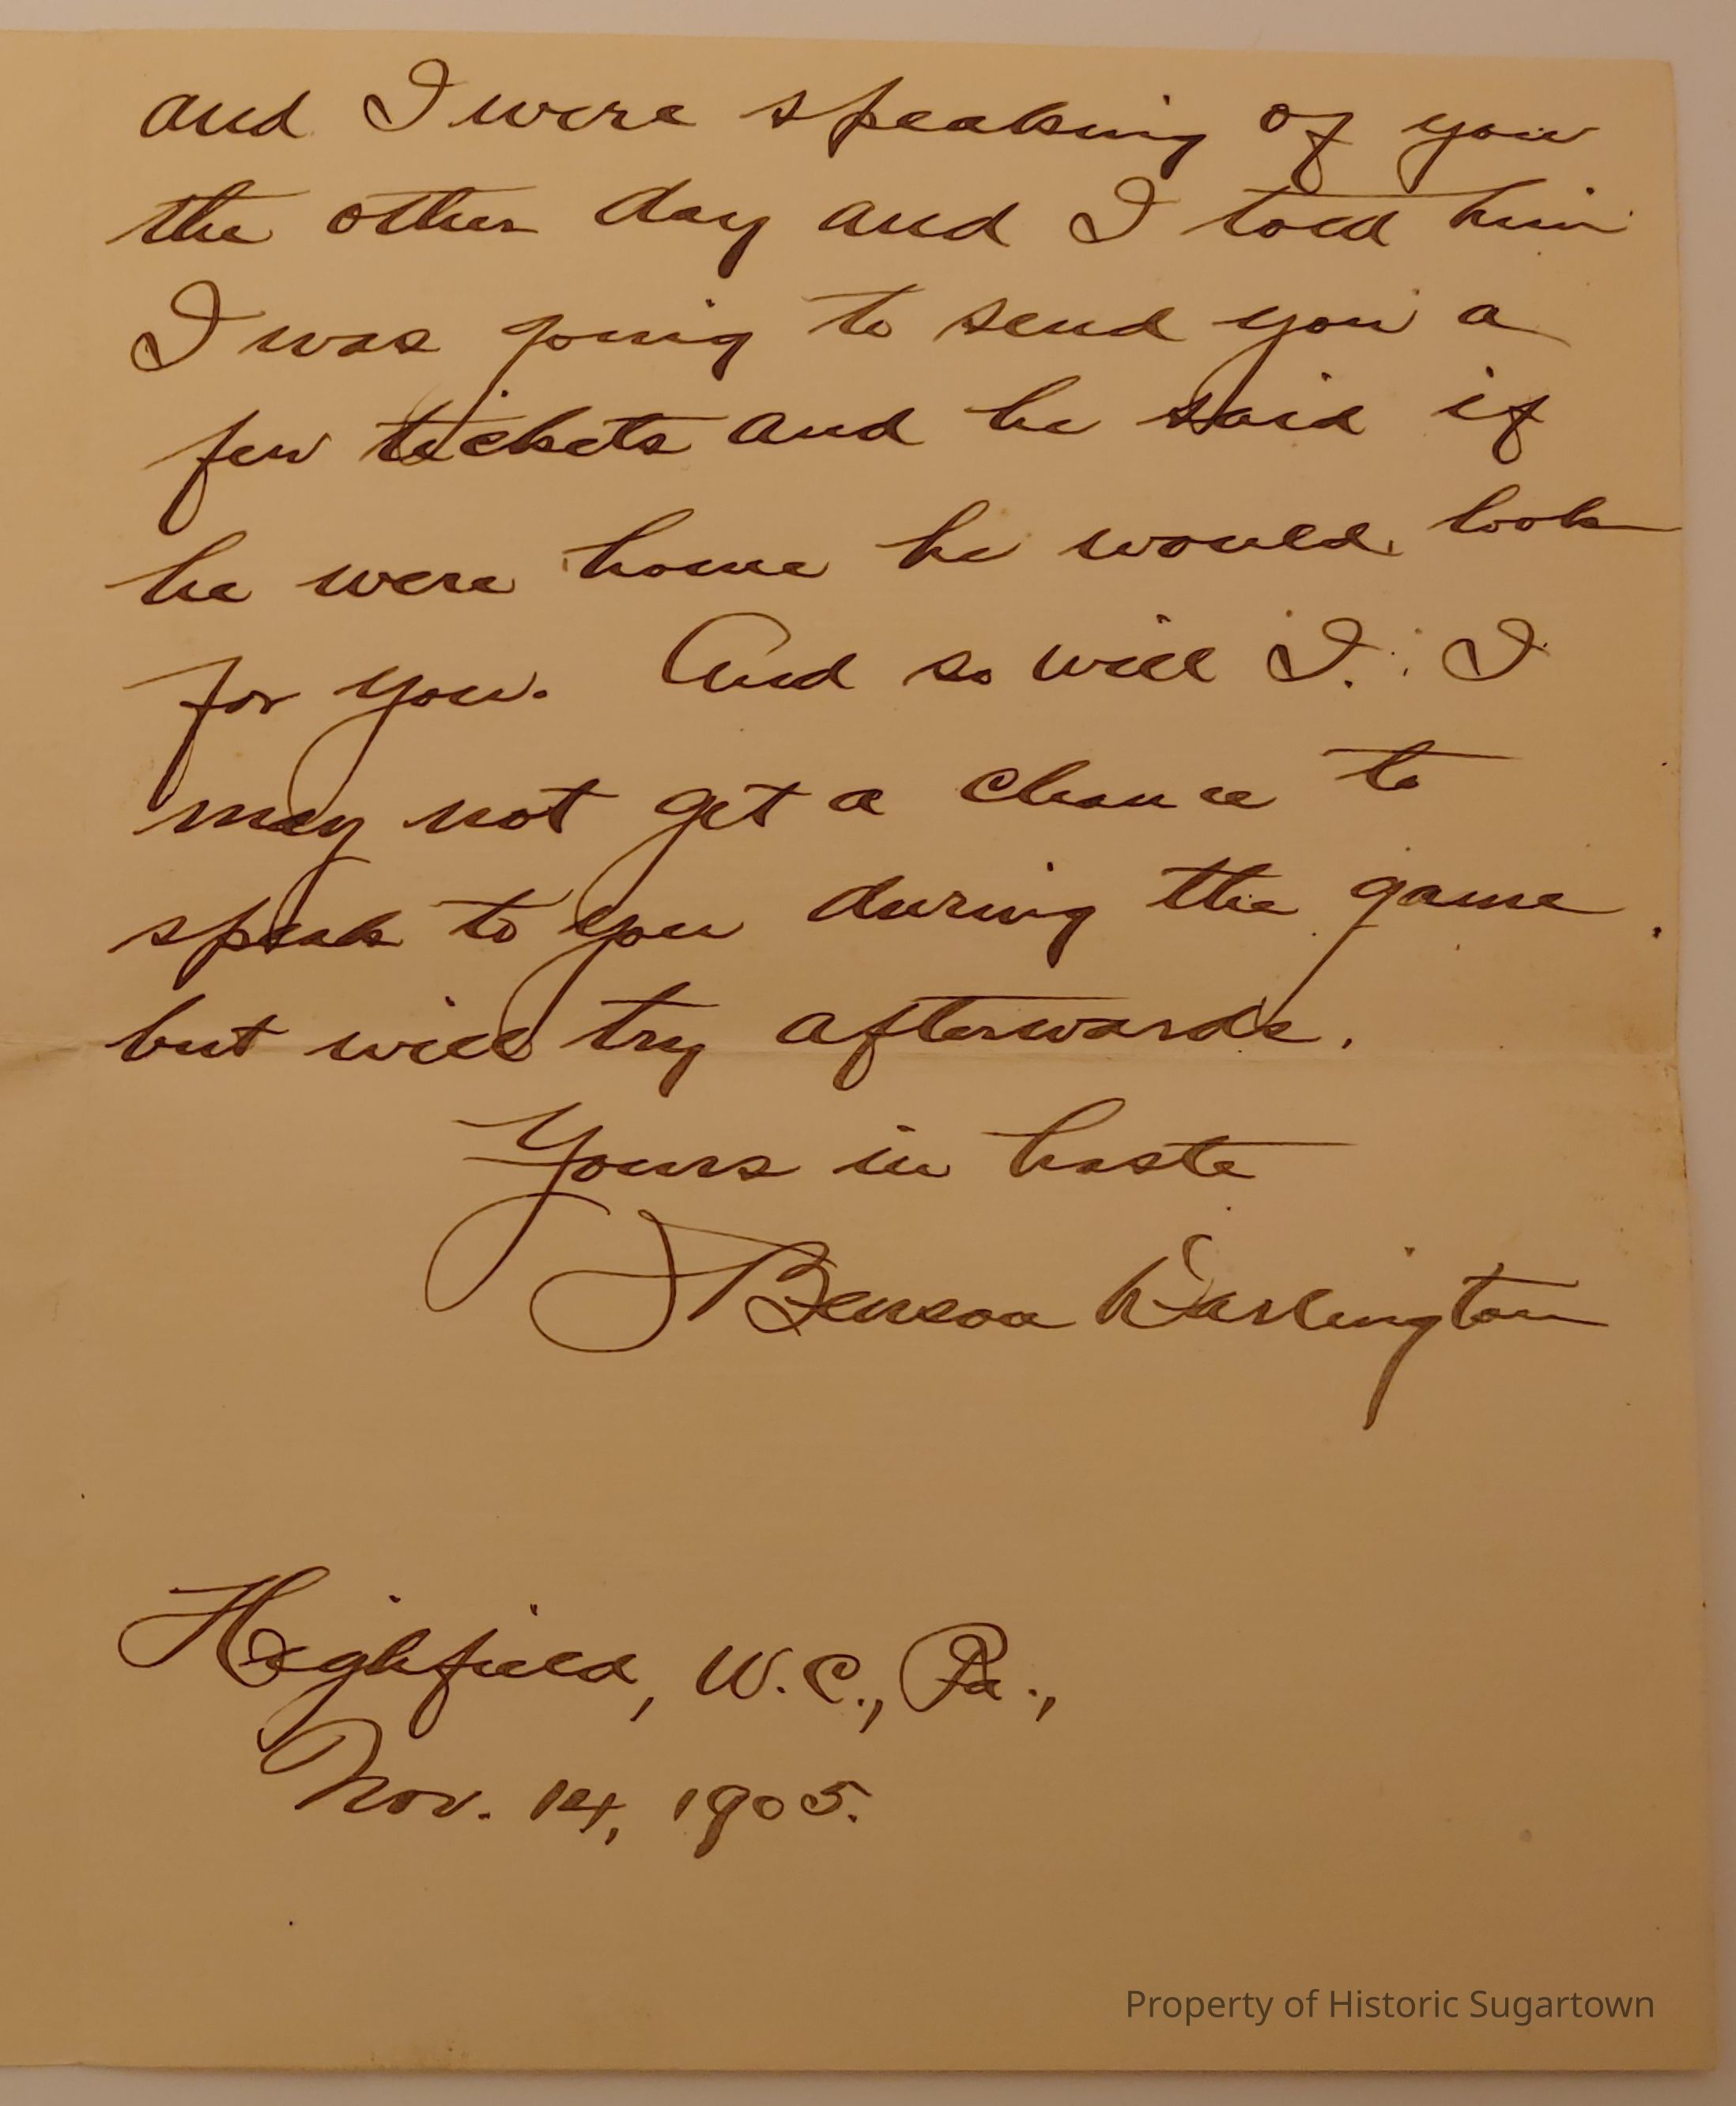 and I were speaking of you
the other day and I told him
I was going to send you a
few tickets and he said if
he were home he would look
for you. And so will I. I
may not get a chance to
speak to you during the game
but will try afterwards.
Yours in haste
J Benson Darlington
Highfield, W.C., Pa.,
Nov. 14, 1905.
Property of Historic Sugartown